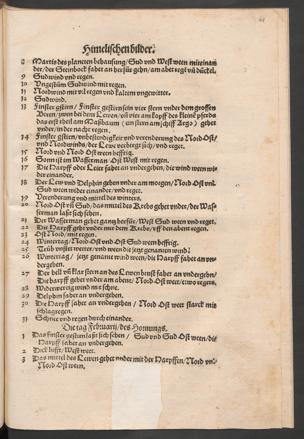 Himelischen bilder.
8 Martis des planeten behausung / Sud vnd West wen miteinan
der / der Steinbock fahet an herfür gehn / am abet regē vñ dückel.
9 Sudwind vnd regen.
10 Vngestüm Sudwind mit regen.
11 Nordwind mit vil regen vnd kaltem vngewitter.
12 Sudwind.
13 Finster gstirn / Finster gestirn sein vier stern vnder dem grossen
Beren / zwen bei dem Lewen / vñ vier am kopff des kleinē pferds
das erst theil am Mastbaum (ein stern am schiff Argo) gehet
vnder / in der nacht regen.
14 Finster gestirn / vnbestendigkeit vnd verenderung des Nord-Ost /
vnd Nordwinds / der Lewe verbergt sich / vnd regnet.
15 Nord vnd Nord Ost wen hefftig.
16 Sonn ist im Wasserman Ost West mit regen.
17 Die Harpff oder Leier fahet an vndergehen / die wind wen wi-
der einander.
18 Der Lew vnd Delphin gehen vnder am morgen / Nord Ost vnd
Sud wen wider einander / vnd regen.
19 Verenderung vnd mittel des winters.
20 Nord Ost vñ Sud / das mittel des Krebs gehet vnder / der Was-
serman laßt sich sehen.
21 Der Wasserman gehet gang herfür / West Sud wen vnd regnet.
22 Die Harpff geht vnder mit dem Krebs / vff den abent regen.
23 Ost Nord / mit regen.
24 Wintertag / Nord Ost vnd Ost Sud wen hefftig.
25 Trüb vnstet wetter / vnd wen die jetz genanten wind.
26 Wintertag / jetz genante wind wen / die Harpff fahet an vn-
dergehen.
27 Der hell vñ klar stern an des Lewen brust fahet an vndergehen /
Die harpff gehet vnder am abent / Nord Ost wet / etwo regets.
28 Vnderwertig wind mit schne.
29 Delphin fahet an vndergehen.
30 Die Harpff fahet an vndergehen / Nord Ost weet starck mit
schlagregen.
31 Schnee vnd regen durch einander.
Die tag Februarij / des Hornungs.
1 Das finster gestirn laßt sich sehen / Sud vnd Sud Ost wen / die
Harpff fahet an vndergehen.
2 Dick lufft / West weet.
3 Das mittel des Lewen gehet vnder mit der Harpffen / Nord vn-
Nord Ost wen.